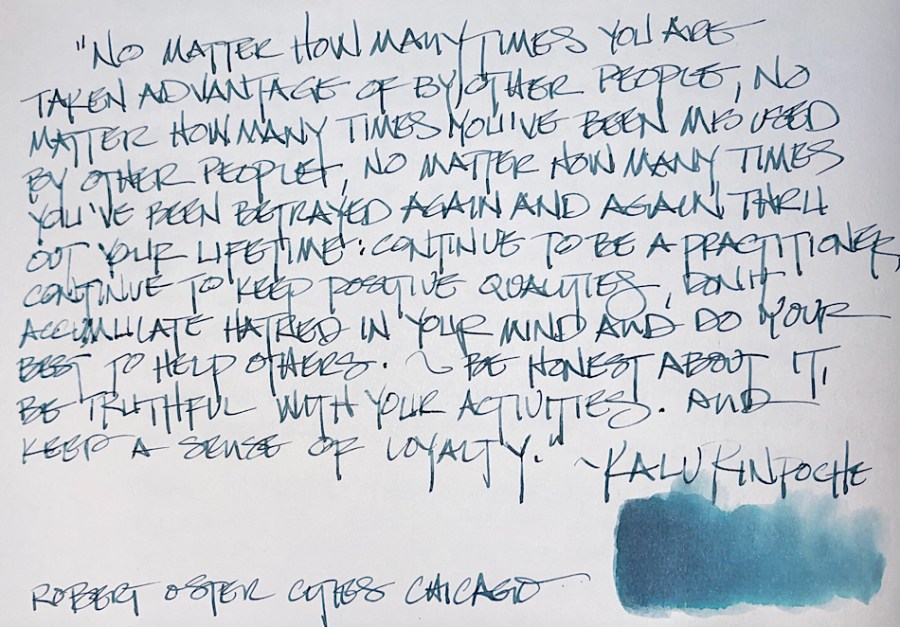 "NO MATTER HOW MANY TIMES YOU ARE
TAKEN ADVANTAGE OF BY OTHER PEOPLE, NO
MATTER HOW MANY TIMES YOU'VE BEEN MISUSED
BY OTHER PEOPLE, NO MATTER HOW MANY TIMES
YOU'VE BEEN BETRAYED AGAIN AND AGAIN THRU
OUT YOUR LIFETIME: CONTINUE TO BE A PRACTITIONER,
CONTINUE TO KEEP POSITIVE QUALITIES, DON'T
ACCUMULATE HATRED IN YOUR MIND AND DO YOUR
BEST TO HELP OTHERS. ~ BE HONEST ABOUT IT,
BE TRUTHFUL WITH YOUR ACTIVITIES. AND
KEEP A SENSE OF LOYALTY."
~KALU RINPOCHE
ROBERT OSTER CITIES CHICAGO